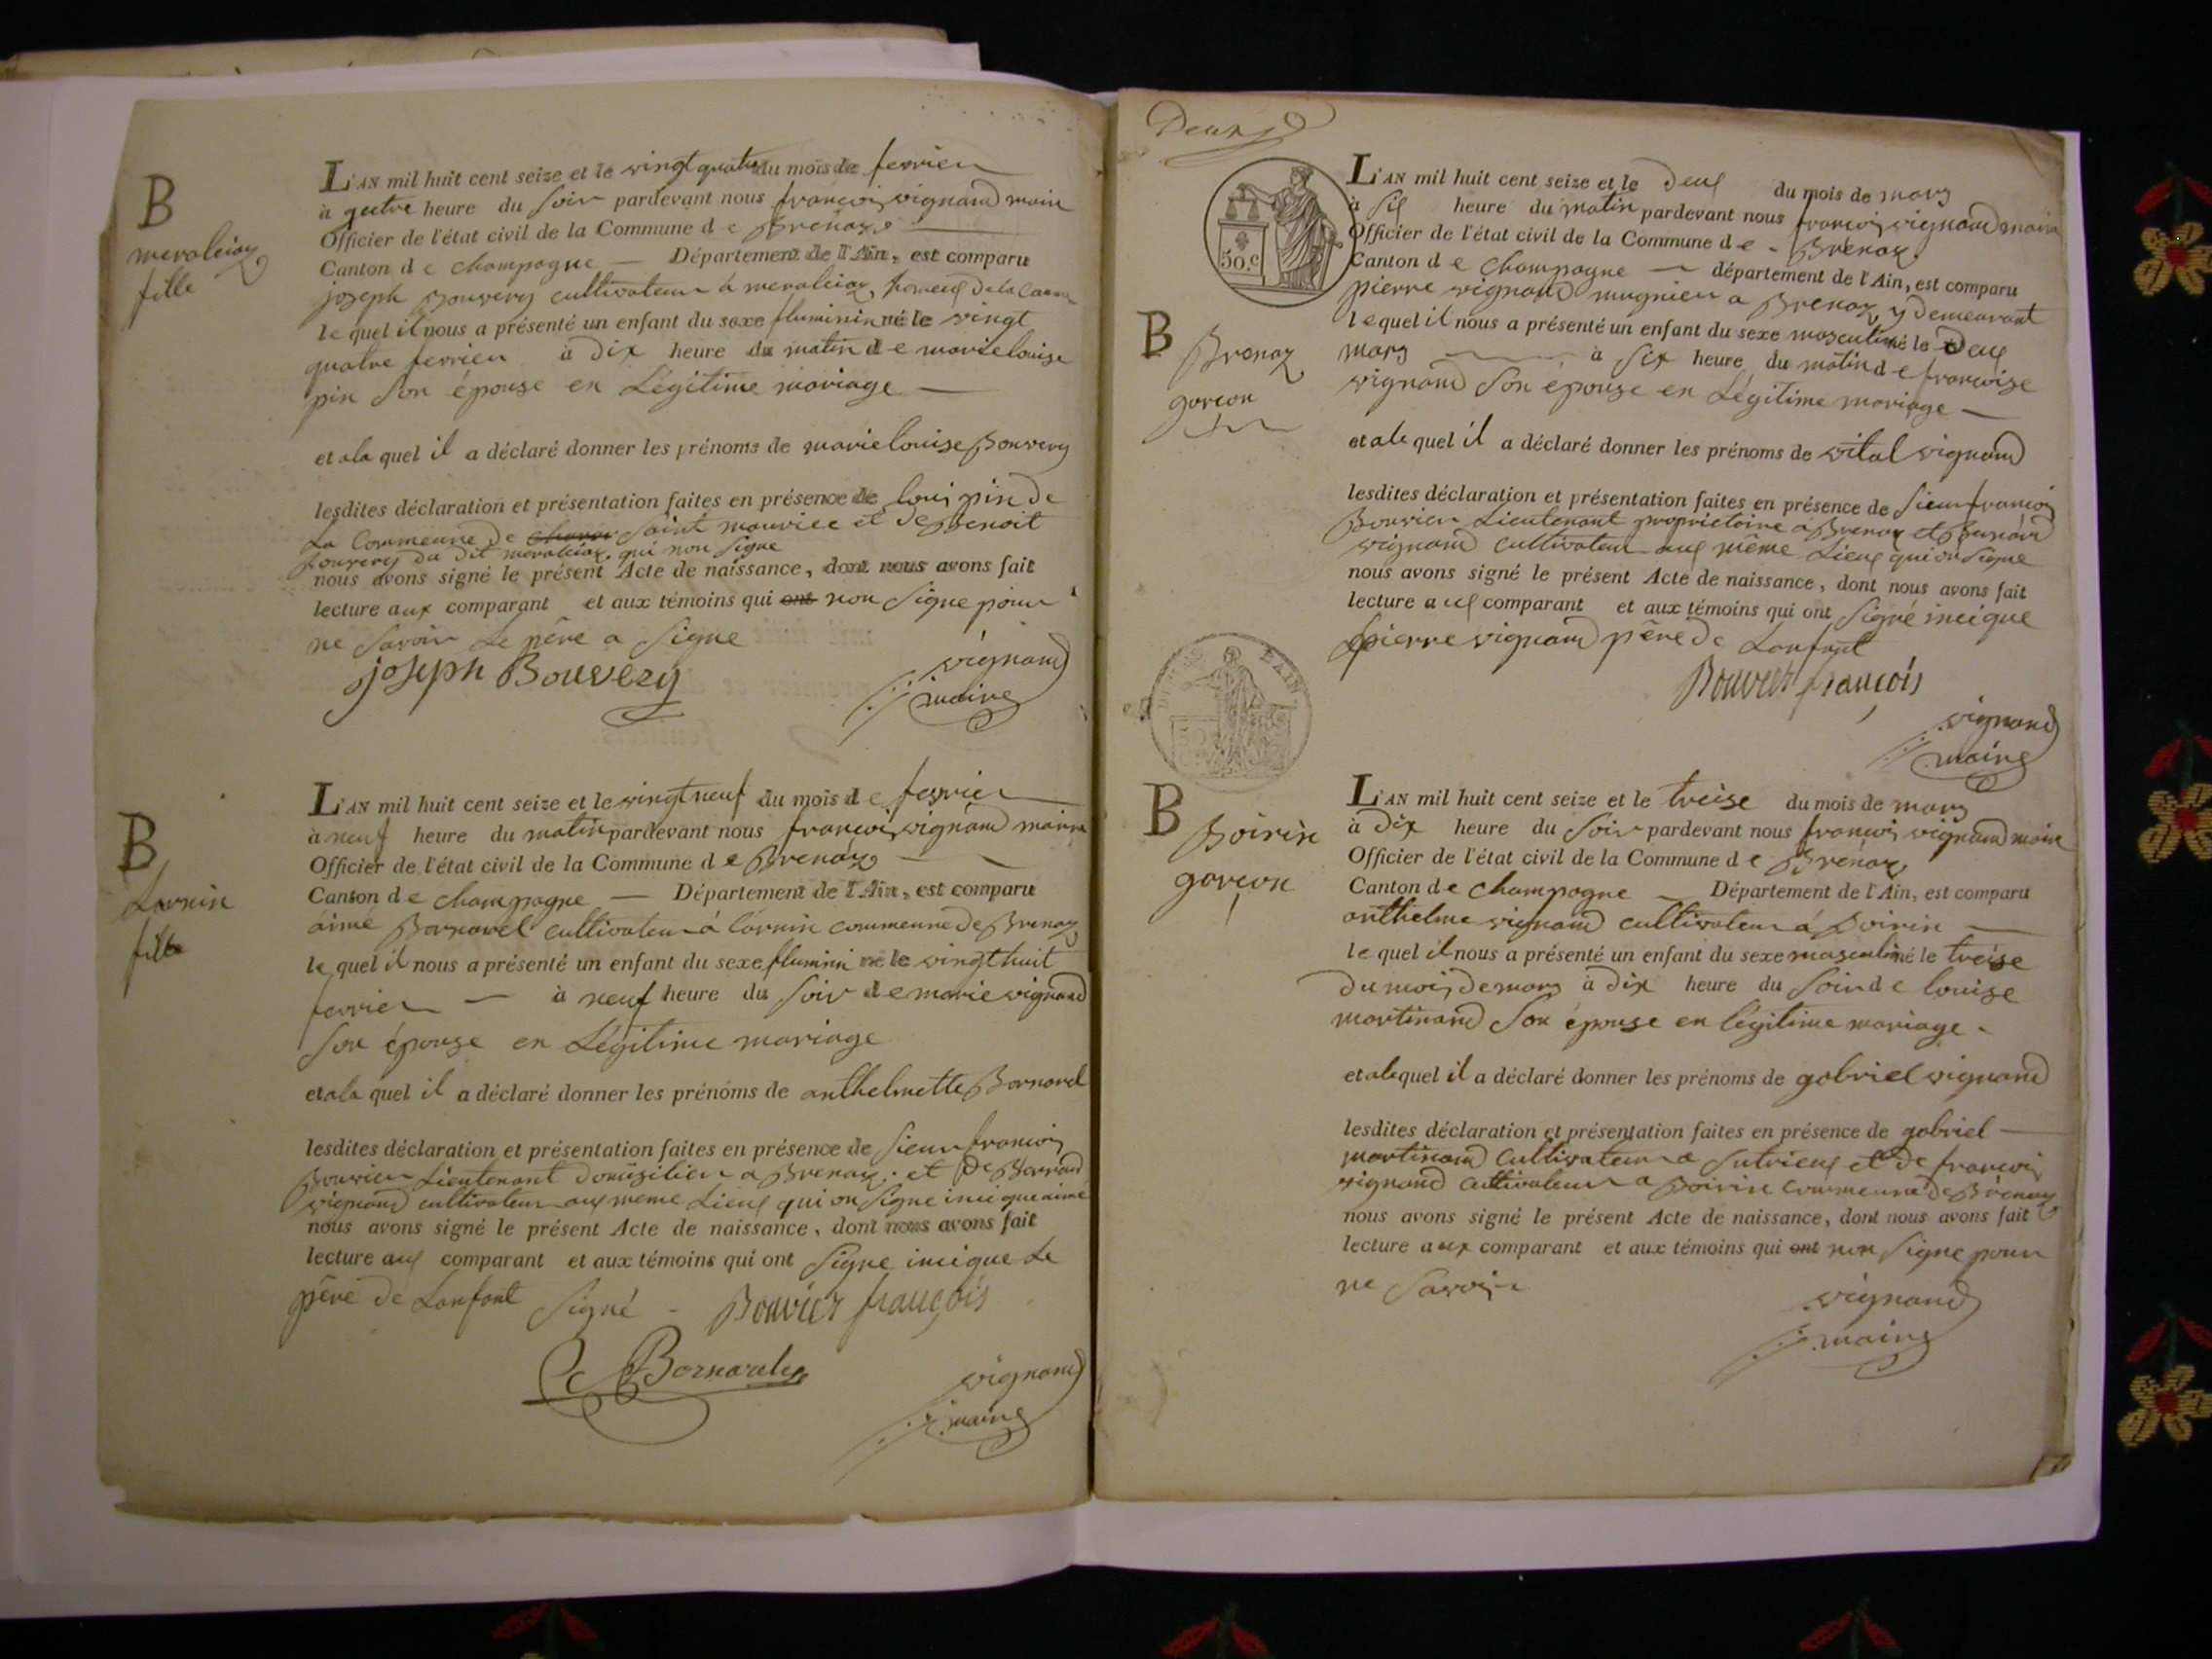 B
meraleiaz
fille
L'AN mil huit cent seize et le vingt quatre du mois de fevrier
à quatre heure du soir pardevant nous francois vignand maire
Officier de l'état civil de la Commune de Brenaz
Canton de champagne — Département de l'Ain, est comparu
joseph Bouvery cultivateur à meraleiaz
le quel il nous a présenté un enfant du sexe fluminin né le vingt
quatre fevrier à dix heure du matin de marie louise
pin son épouse en Légitime mariage —
et ala quel il a déclaré donner les prénoms de marie louise Bouvery
lesdites déclaration et présentation faites en présence de loui pin de
La Commeune de saint mauriee et de Benoit
Bouvery du dit meraleiaz qui non signe
nous avons signé le présent Acte de naissance, dont nous avons fait
lecture aux comparant et aux témoins qui ont non signe pour
ne savoir Le père a signe
joseph Bouvery
vignand
maire
B
Lornin
fille
L'AN mil huit cent seize et le vingt neuf du mois de fevrier
à neuf heure du matin pardevant nous francois vignand maire
Officier de l'état civil de la Commune de Brenaz
Canton de champagne — Département de l'Ain, est comparu
aimé Bornarel cultivateur à Lornin commeune de Brenaz
le quel il nous a présenté un enfant du sexe fluminin né le vingt huit
fevrier — à neuf heure du soir de marie vignand
son épouse en Légitime mariage
et ala quel il a déclaré donner les prénoms de anthelmette Bornarel
lesdites déclaration et présentation faites en présence de sieur francois
Bouvier Lieutenant domisilier a Brenaz et de Bernard
vignand cultivateur aux meme Lieux qui on signe insi que aimé
nous avons signé le présent Acte de naissance, dont nous avons fait
lecture aux comparant et aux témoins qui ont signe insique Le
père de Lanfant signé - Bouvier françois
Bornarel
vignand
maire
Deux
50.c
L'AN mil huit cent seize et le deux du mois de mars
à six heure du matin pardevant nous francois vignand maire
Officier de l'état civil de la Commune de Brenaz
Canton de champagne — département de l'Ain, est comparu
pierre vignand mugnier a Brenaz y demeurant
B
Brenaz
garcon
le quel il nous a présenté un enfant du sexe masculin né le deux
mars à six heure du matin de francoise
vignand son épouse en Légitime mariage —
et ale quel il a déclaré donner les prénoms de vital vignand
lesdites déclaration et présentation faites en présence de sieur francois
Bouvier Lieutenant proprietaire a Brenaz et Bernard
vignand cultivateur aux même Lieux qui on signe
nous avons signé le présent Acte de naissance, dont nous avons fait
lecture aux comparant et aux témoins qui ont signé insique
pierre vignand père de Lanfant
Bouvier françois
vignand
maire
B
Boirin
garcon
L'AN mil huit cent seize et le treise du mois de mars
à dix heure du soir pardevant nous francois vignand maire
Officier de l'état civil de la Commune de Brénaz
Canton de champagne — Département de l'Ain, est comparu
anthelme vignand cultivateur à Boirin —
le quel il nous a présenté un enfant du sexe masculin né le treise
du mois de mars à dix heure du soir de louise
martinand son épouse en légitime mariage -
et ale quel il a déclaré donner les prénoms de gabriel vignand
lesdites déclaration et présentation faites en présence de gabriel —
martinand cultivateur a sutrieux et de francois
vignand cultivateur a Boirin commeune de Brénaz
nous avons signé le présent Acte de naissance, dont nous avons fait
lecture aux comparant et aux témoins qui ont non signe pour
ne savoir
vignand
maire